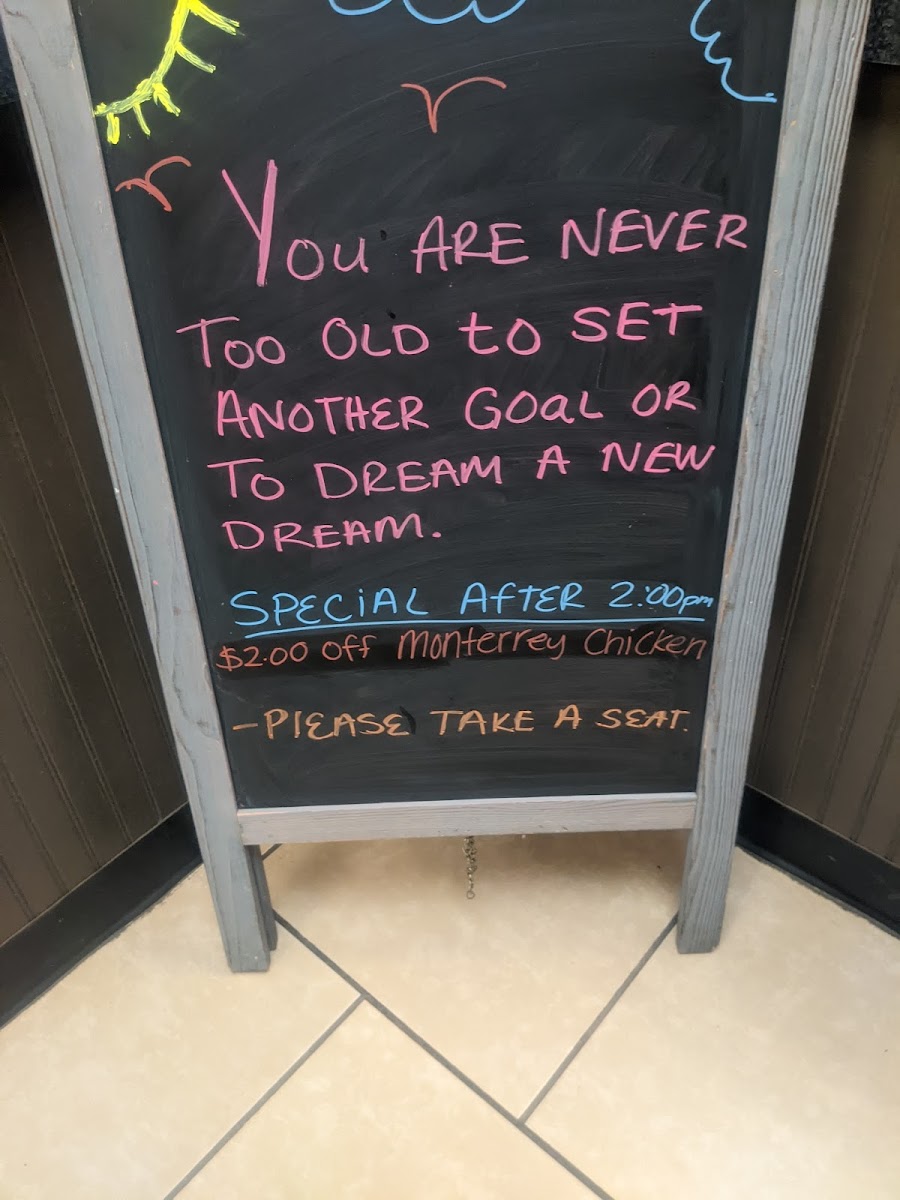 You ARE NEVER
Too OLD to SET
ANOTHER GOaL OR
To DREAM A NEW
DREAM.
SPECiAL AfTER 2:00pm
$2.00 off Monterrey Chicken
-PLEASE TAKE A SEAT.